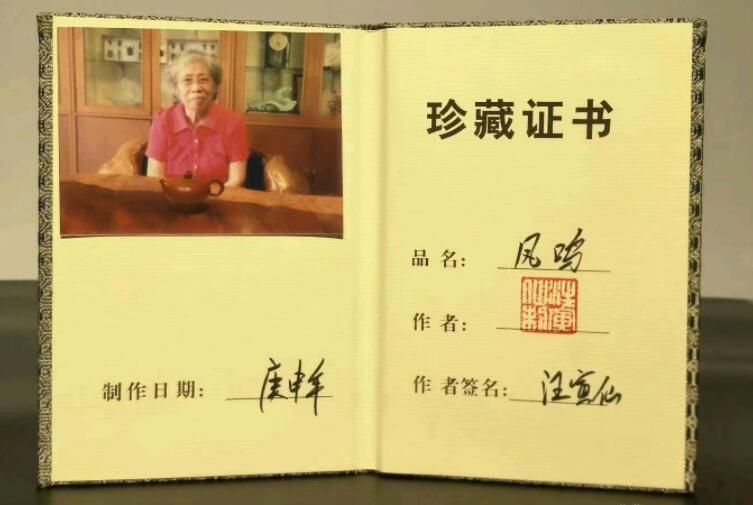 制作日期: 庚申年
珍藏证书
品名: 凤鸣
作者:
作者签名: 汪寅仙